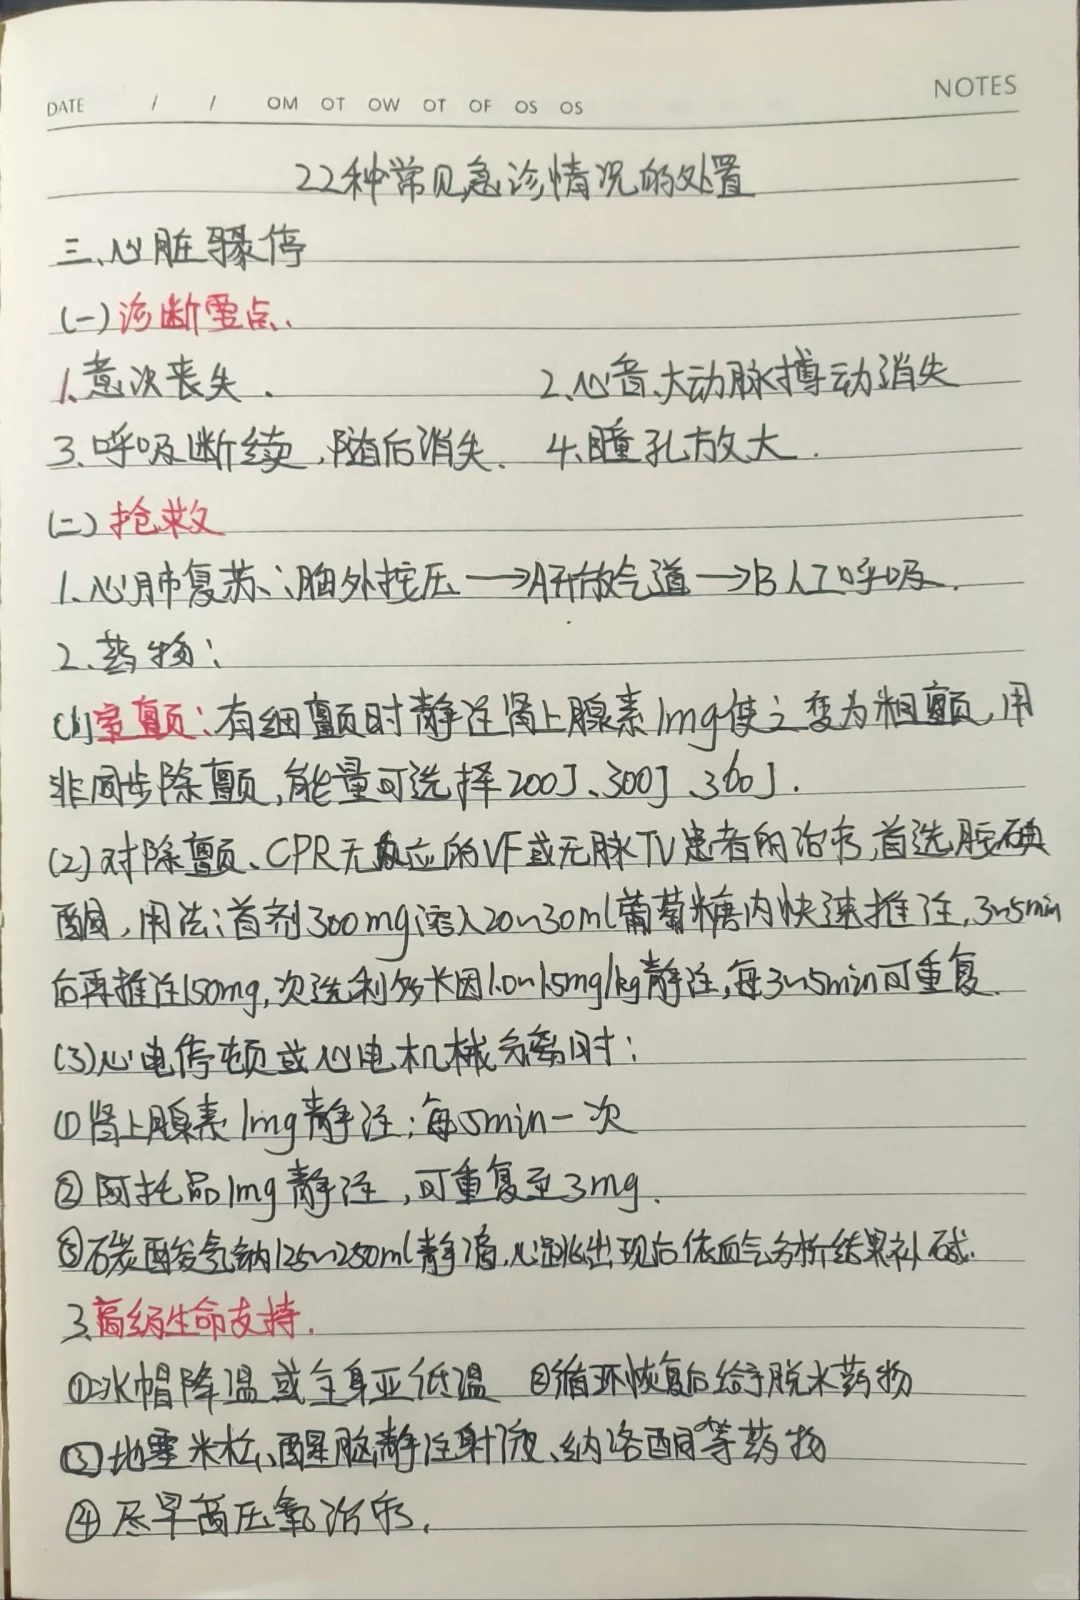 NOTES
DATE / / OM OT OW OT OF OS OS
22种常见急诊情况的处置
三、心脏骤停
(一)诊断要点、
1.意次丧失. 2.心音、大动脉搏动消失
3.呼吸断续,随后消失. 4.瞳孔放大.
(二)抢救
1.心肺复苏:胸外按压→A开放气道→B人工呼吸.
2.药物:
(1)室颤:有细颤时静注肾上腺素1mg使之变为粗颤,用
非同步除颤,能量可选择200J、300J、360J.
(2)对除颤、CPR无效应的VF或无脉TV患者的治疗,首选胺碘
酮,用法:首剂300mg溶入20~30ml葡萄糖内快速推注,3~5min
后再推注150mg,次选利多卡因1.0~1.5mg/kg静注,每3~5min可重复.
(3)心电停顿或心电机械分离时:
①肾上腺素1mg静注;每5min一次
②阿托品1mg静注,可重复至3mg.
③碳酸氢钠125~250ml静滴,心跳出现后依血气分析结果补碱.
3.高级生命支持.
①冰帽降温或全身亚低温 ②循环恢复后给予脱水药物
③地塞米松、醒脑静注射液、纳洛酮等药物
④尽早高压氧治疗.